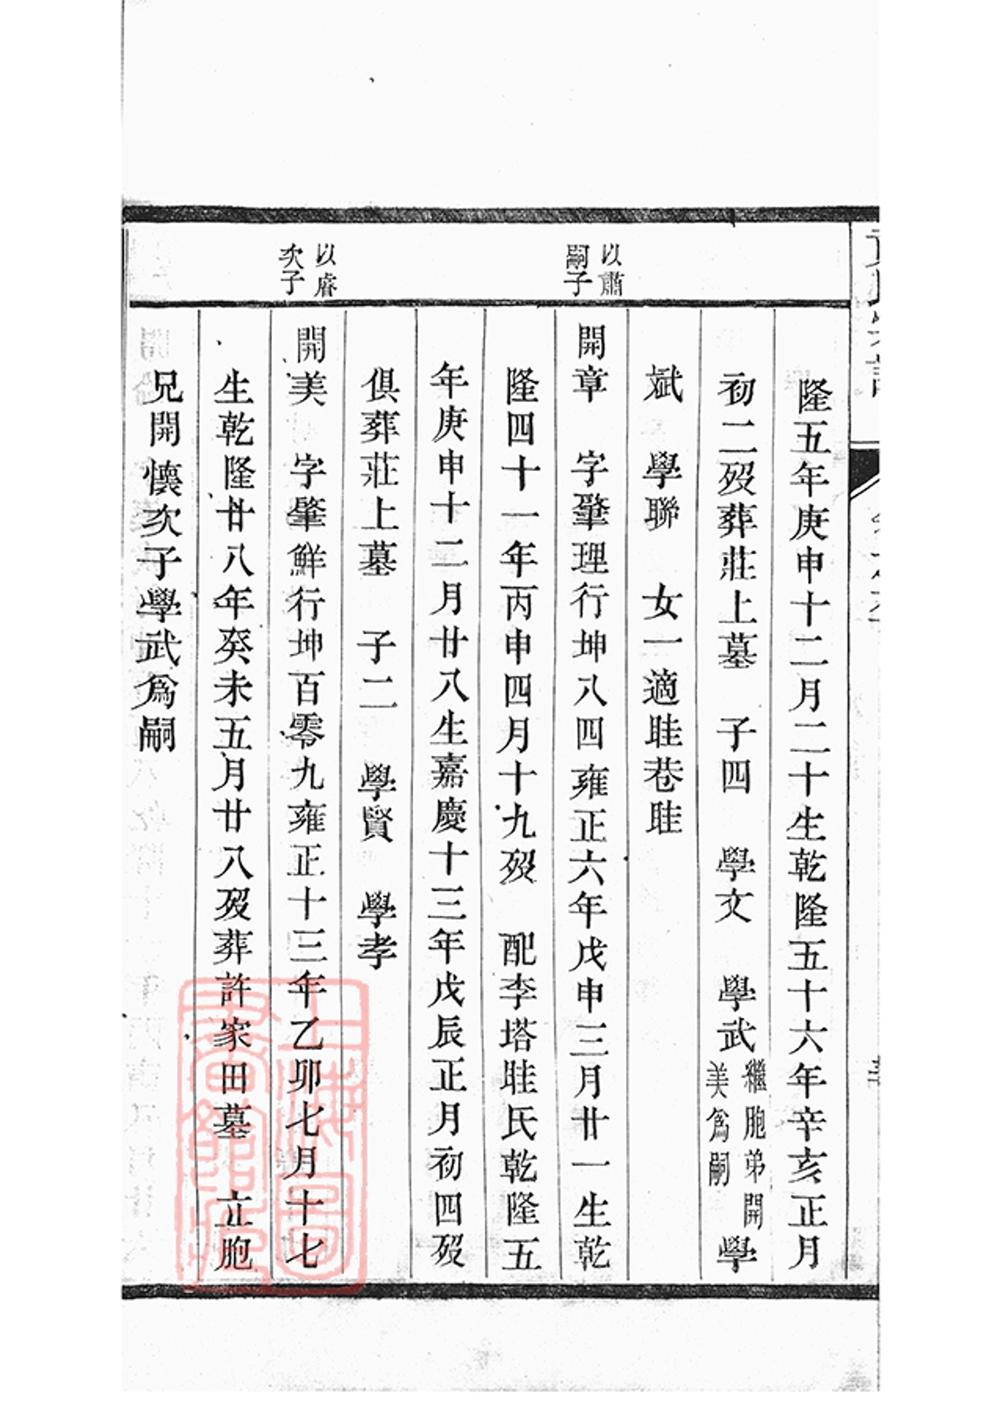 隆五年庚申十二月二十生乾隆五十六年辛亥正月
初二歿葬莊上墓 子四 學文 學武繼胞弟開美爲嗣 學
斌 學聯 女一適眭巷眭
以肅
嗣子
開章 字肇理行坤八四雍正六年戊申三月廿一生乾
隆四十一年丙申四月十九歿 配李塔眭氏乾隆五
年庚申十二月廿八生嘉慶十三年戊辰正月初四歿
俱葬莊上墓 子二 學賢 學孝
以睿
次子
開美 字肇鮮行坤百零九雍正十三年乙卯七月十七
生乾隆廿八年癸未五月廿八歿葬許家田墓 立胞
兄開懷次子學武爲嗣
上海圖書館藏